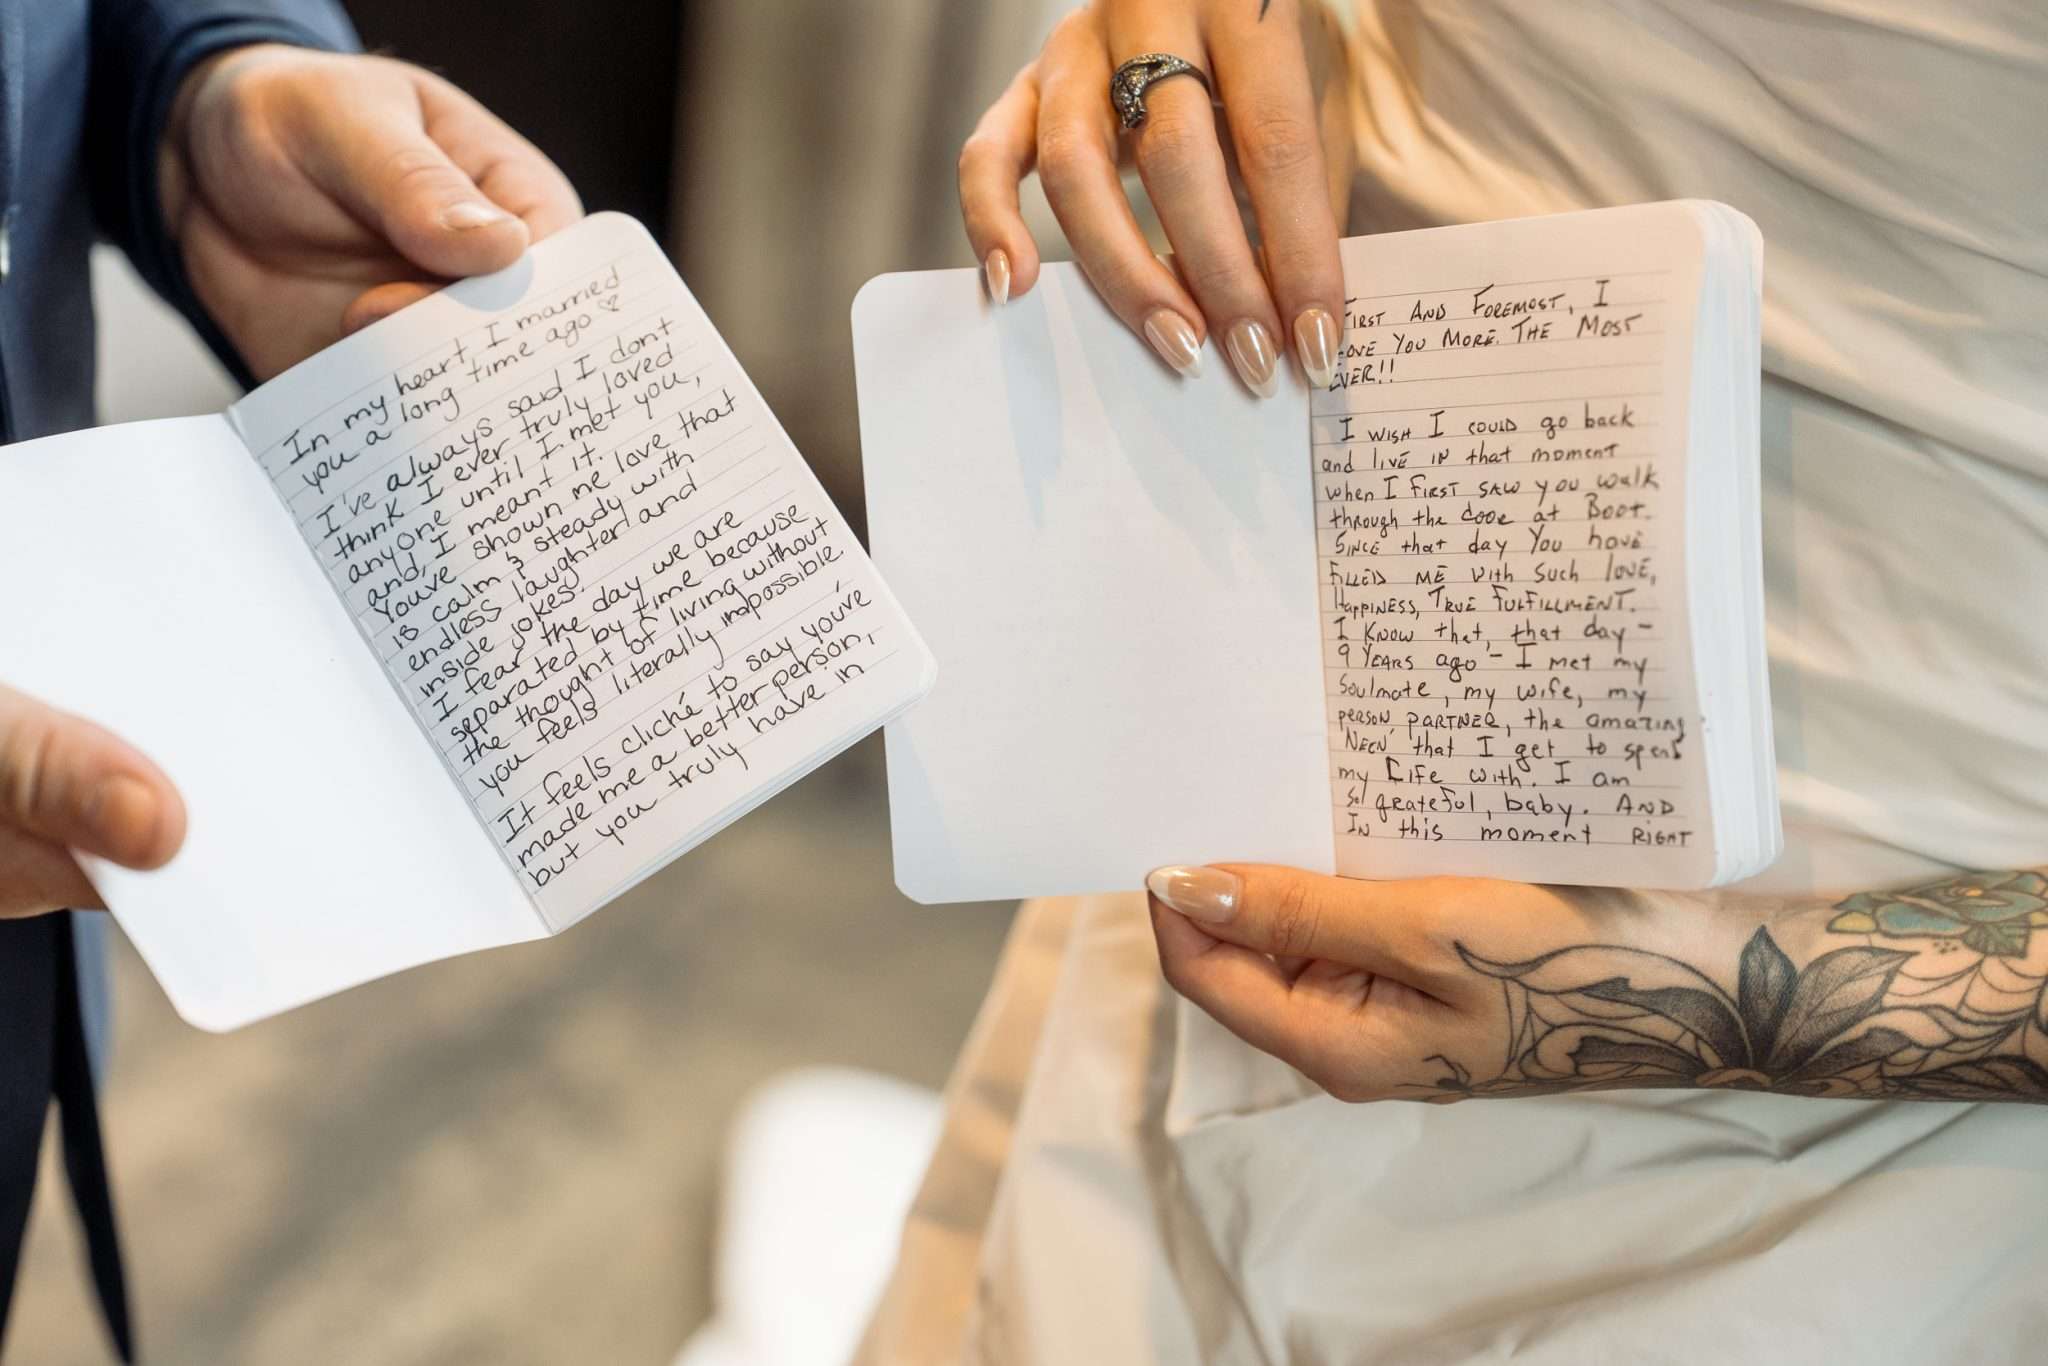 In my heart, I married
you a long time ago ♡
I've always said I don't
think I ever truly loved
anyone until I met you,
and, I meant it.
You've shown me love that
is calm & steady with
endless laughter and
inside jokes.
I fear the day we are
separated by time because
the thought of living without
you feels literally impossible
It feels cliché to say you've
made me a better person,
but you truly have in
First And Foremost, I
Love You More. The Most
Ever!!
I wish I could go back
and live in that moment
when I first saw you walk
through the door at Boot.
Since that day You have
filled me with such love,
Happiness, True Fulfillment.
I know that, that day -
9 Years ago - I met my
Soulmate, my wife, my
person partner, the amazing
that I get to spend
my Life with. I am
so grateful, baby. And
In this moment Right